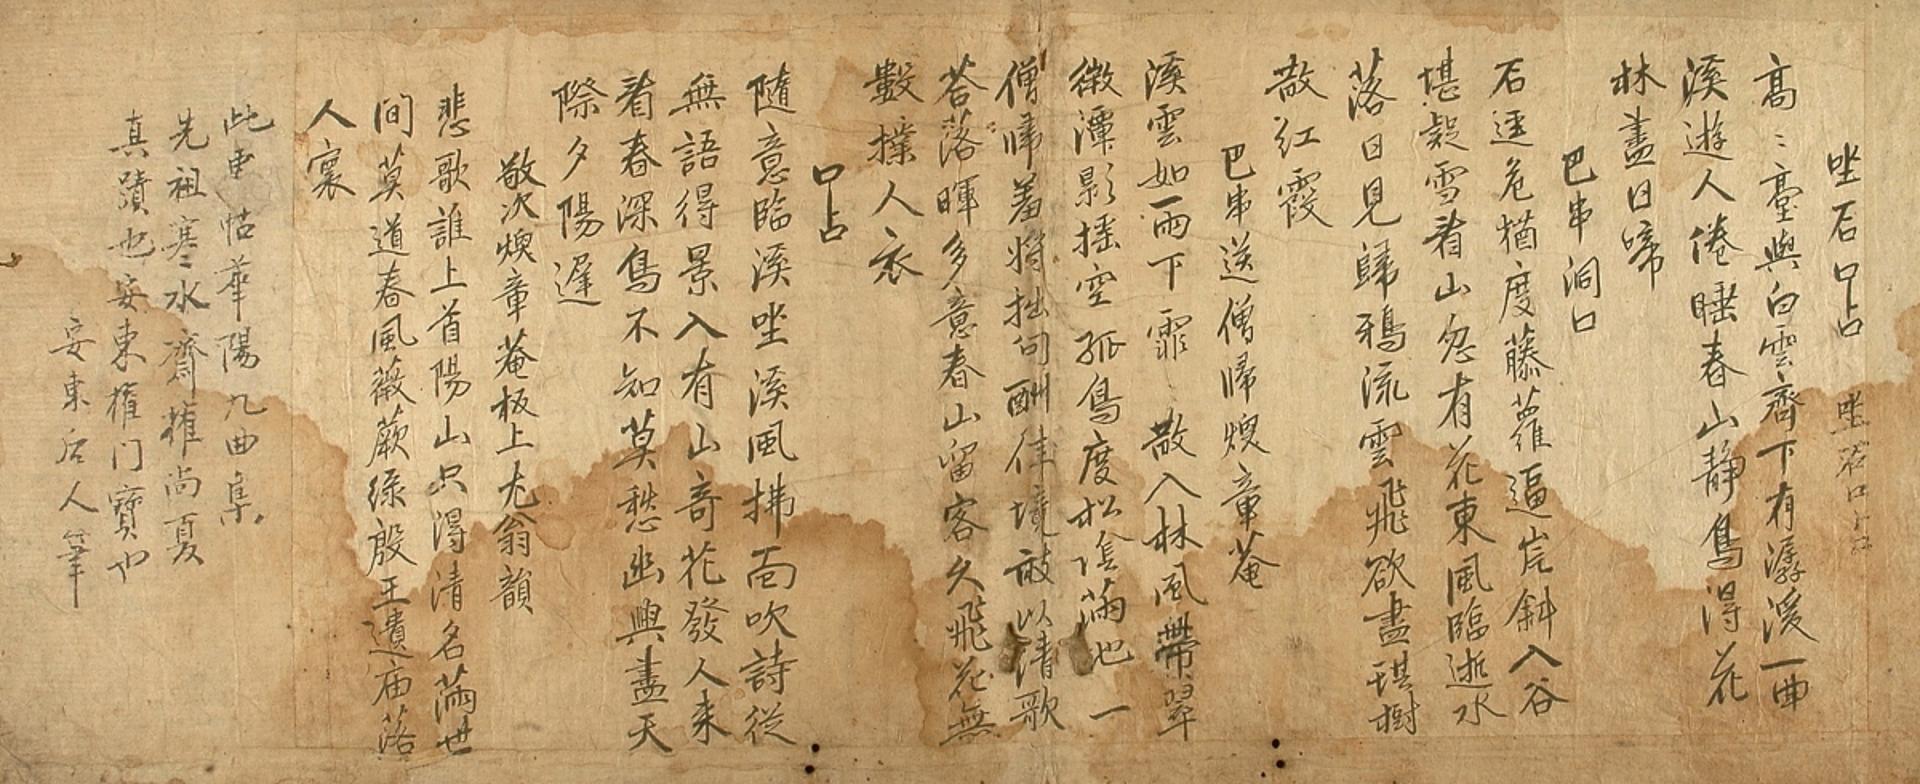 坐石口占 坐石口占
高〻臺與白雲齊下有潺溪一曲
溪遊人倦睡春山靜鳥得花
林盡日啼
巴串洞口
石逕危楢度藤蘿逼岸斜入谷
堪疑雪看山忽有花東風臨逝水
落日見歸鴉流雲飛欲盡琪樹
散紅霞
巴串送僧歸煥章菴
溪雲如雨下霏〻散入林風帶翠
微潭影搖空孤鳥度松陰滿地一
僧歸羞將拙句酬佳境敲以清歌
荅落暉多意春山留客久飛花無
數撲人衣
口占
隨意臨溪坐溪風拂面吹詩從
無語得景入有山奇花發人來
看春深鳥不知莫愁幽興盡天
際夕陽遲
敬次煥章菴板上尤翁韻
悲歌誰上首陽山只得清名滿世
間莫道春風薇蕨綠殷王遺廟落
人寰
此事帖華陽九曲集
先祖寒水齋權尚夏
真蹟也安東權门寶也
安東后人筆